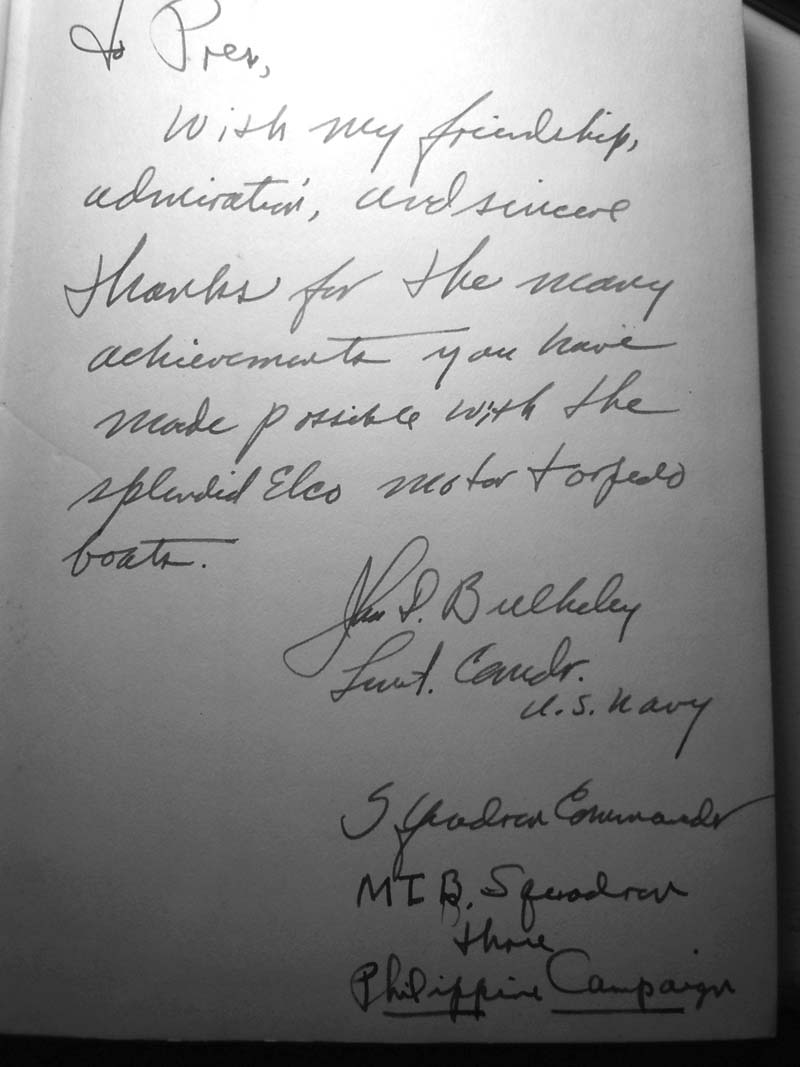 To Pres,
With my friendship,
admiration, and sincere
thanks for the many
achievements you have
made possible with the
splendid Elco motor torpedo
boats.
John D. Bulkeley
Lieut. Comdr.
U.S. Navy
Squadron Commander
MTB. Squadron
three
Philippine Campaign